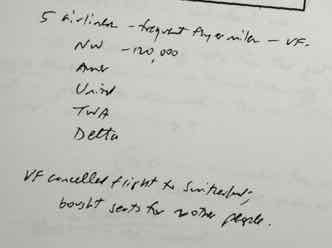 5 airlines - frequent flyer miles - VF.
NW - 120,000
Amer
Unitd
TWA
Delta
VF cancelled flight to Switzerland,
bought seats for mother people.